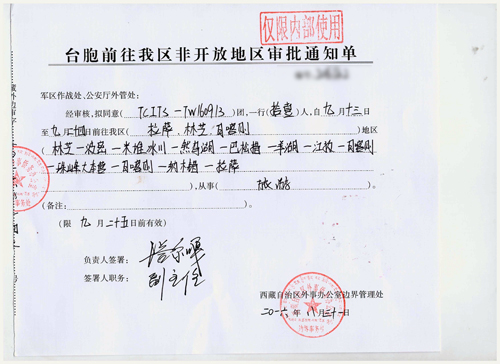 仅限内部使用
台胞前往我区非开放地区审批通知单
军区作战处、公安厅外管处:
经审核,拟同意(TCITS-TW160913)团,一行(拾壹)人,自九月十三日
至九月二十四日前往我区(拉萨,林芝,日喀则)地区
(林芝-波密-米堆冰川-然乌湖-巴松措-羊湖-江孜-日喀则
-珠峰大本营-日喀则-纳木措-拉萨
),从事(旅游)。
(备注:)。
(限九月二十五日前有效)
负责人签署:
签署人职务:副主任
西藏自治区外事办公室边界管理处
二〇一六年八月三十一日